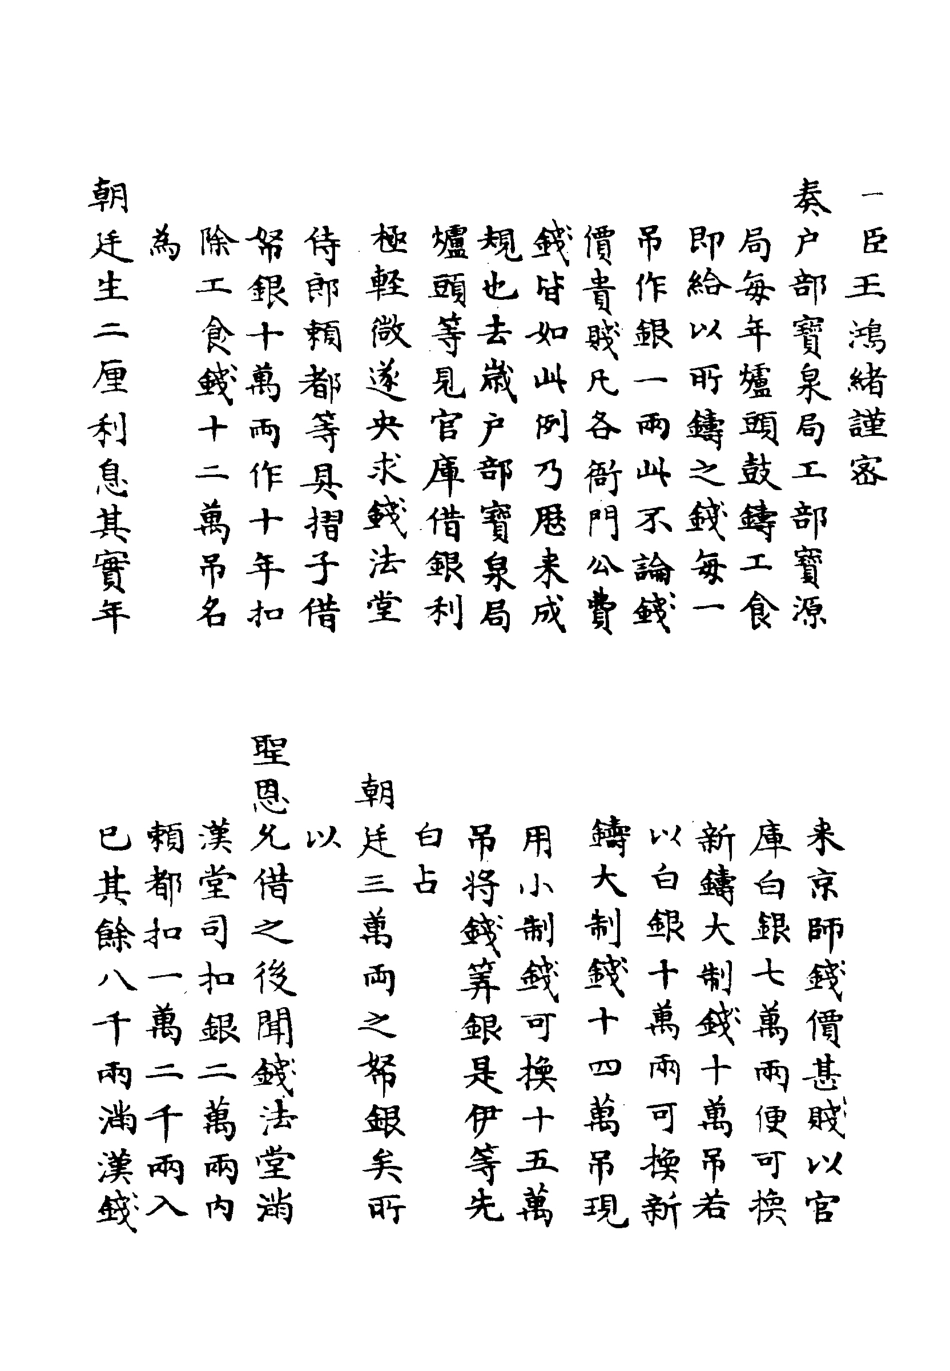 一臣王鴻緒謹密
奏户部寶泉局工部寶源
局每年爐頭鼓鑄工食
即給以所鑄之錢每一
吊作銀一兩此不論錢
價貴賤凡各衙門公費
錢皆如此例乃歷来成
規也去歲户部寶泉局
爐頭等見官庫借銀利
極輕微遂央求錢法堂
侍郎賴都等具摺子借
帑銀十萬両作十年扣
除工食錢十二萬吊名
為
朝廷生二厘利息其實年
来京師錢價甚賤以官
庫白銀七萬兩便可換
新鑄大制錢十萬吊若
以白銀十萬兩可換新
鑄大制錢十四萬吊現
用小制錢可換十五萬
吊將錢筭銀是伊等先
白占
朝廷三萬両之帑銀矣所
以
聖恩允借之後聞錢法堂滿
漢堂司扣銀二萬兩内
賴都扣一萬二千兩入
已其餘八千兩滿漢錢